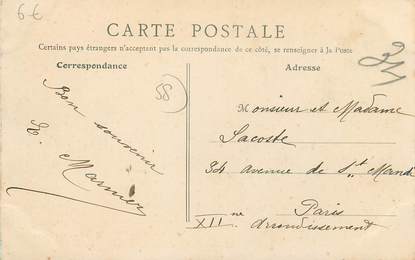 6€
CARTE POSTALE
Certains pays étrangers n'acceptant pas la correspondance de ce côté, se renseigner à la Poste
Correspondance
Adresse
58
Bon souvenir
Marmier
Monsieur et Madame
Lacoste
34 avenue de St Mandé
Paris
XII ne Arrondissement